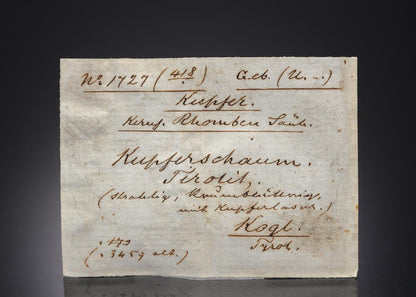 No. 1727 (418) Geb. (U. -.)
Kupfer.
Rhomben Säul.
Kupferschaum.
Tirolit,
(strahlig, krummblättrig,
mit Kupferlasur.)
Kogl.
Tyrol.
(. 3459 alt.)